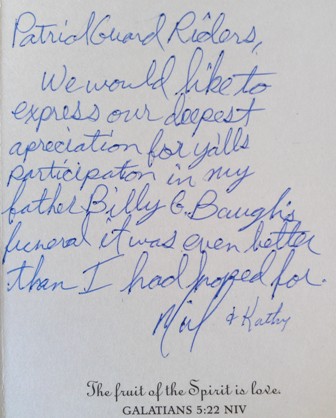 Patriot Guard Riders,
We would like to
express our deepest
apreciation for y'alls
participation in my
father Billy G. Baugh's
funeral it was even better
than I had hoped for.
& Kathy
The fruit of the Spirit is love.
GALATIANS 5:22 NIV